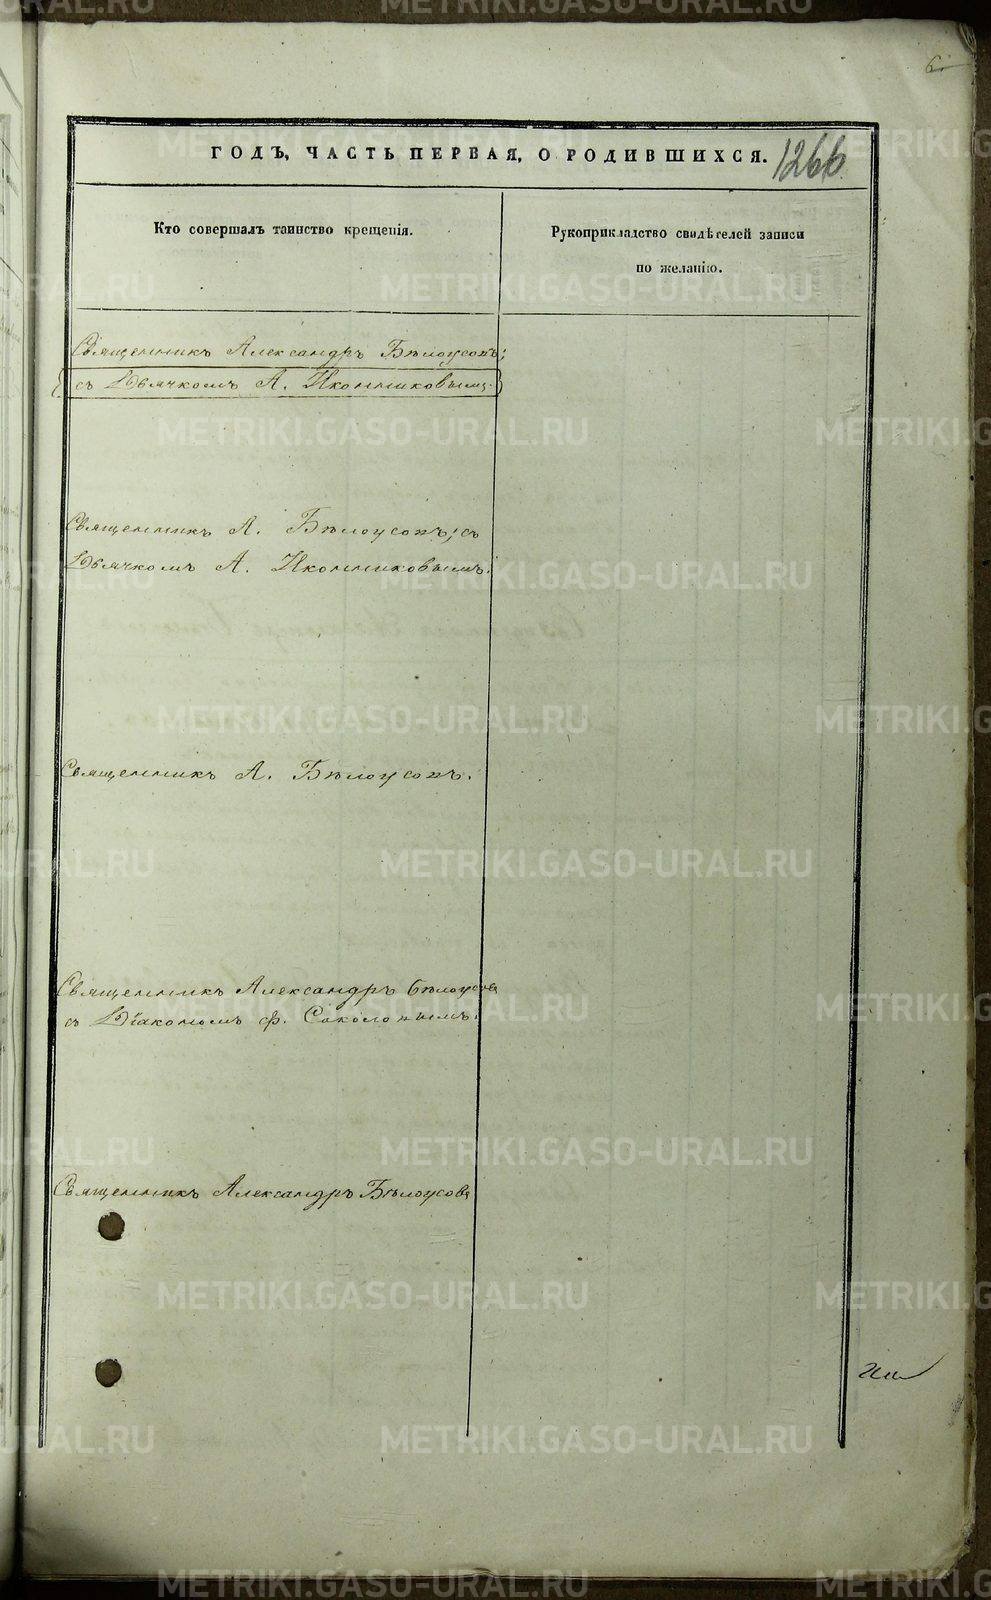 6.
ГОДЪ, ЧАСТЬ ПЕРВАЯ, О РОДИВШИХСЯ. 1266
Кто совершалъ таинство крещенія.
Рукоприкладство свидѣтелей записи
по желанію.
Священникъ Александръ Бѣлоусовъ;
съ Дьячкомъ А. Иконниковымъ.
Священникъ А. Бѣлоусовъ; съ
Дьячкомъ А. Иконниковымъ.
Священникъ А. Бѣлоусовъ.
Священникъ Александръ Бѣлоусовъ
съ Діакономъ Ф. Соколовымъ.
Священникъ Александръ Бѣлоусовъ
METRIKI.GASO-URAL.RU